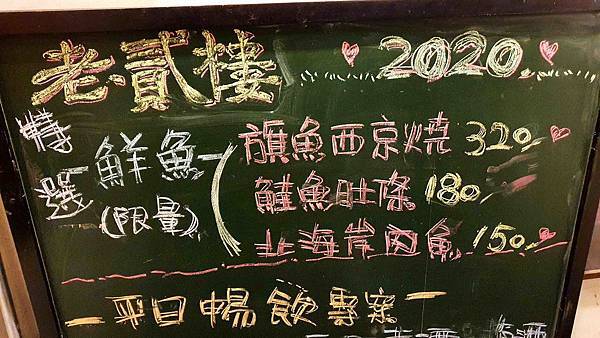 老·貳樓 2020
特選 鮮魚 (限量)
旗魚西京燒 320
鮭魚肚條 180
北海岸肉魚 150
平日暢飲專案